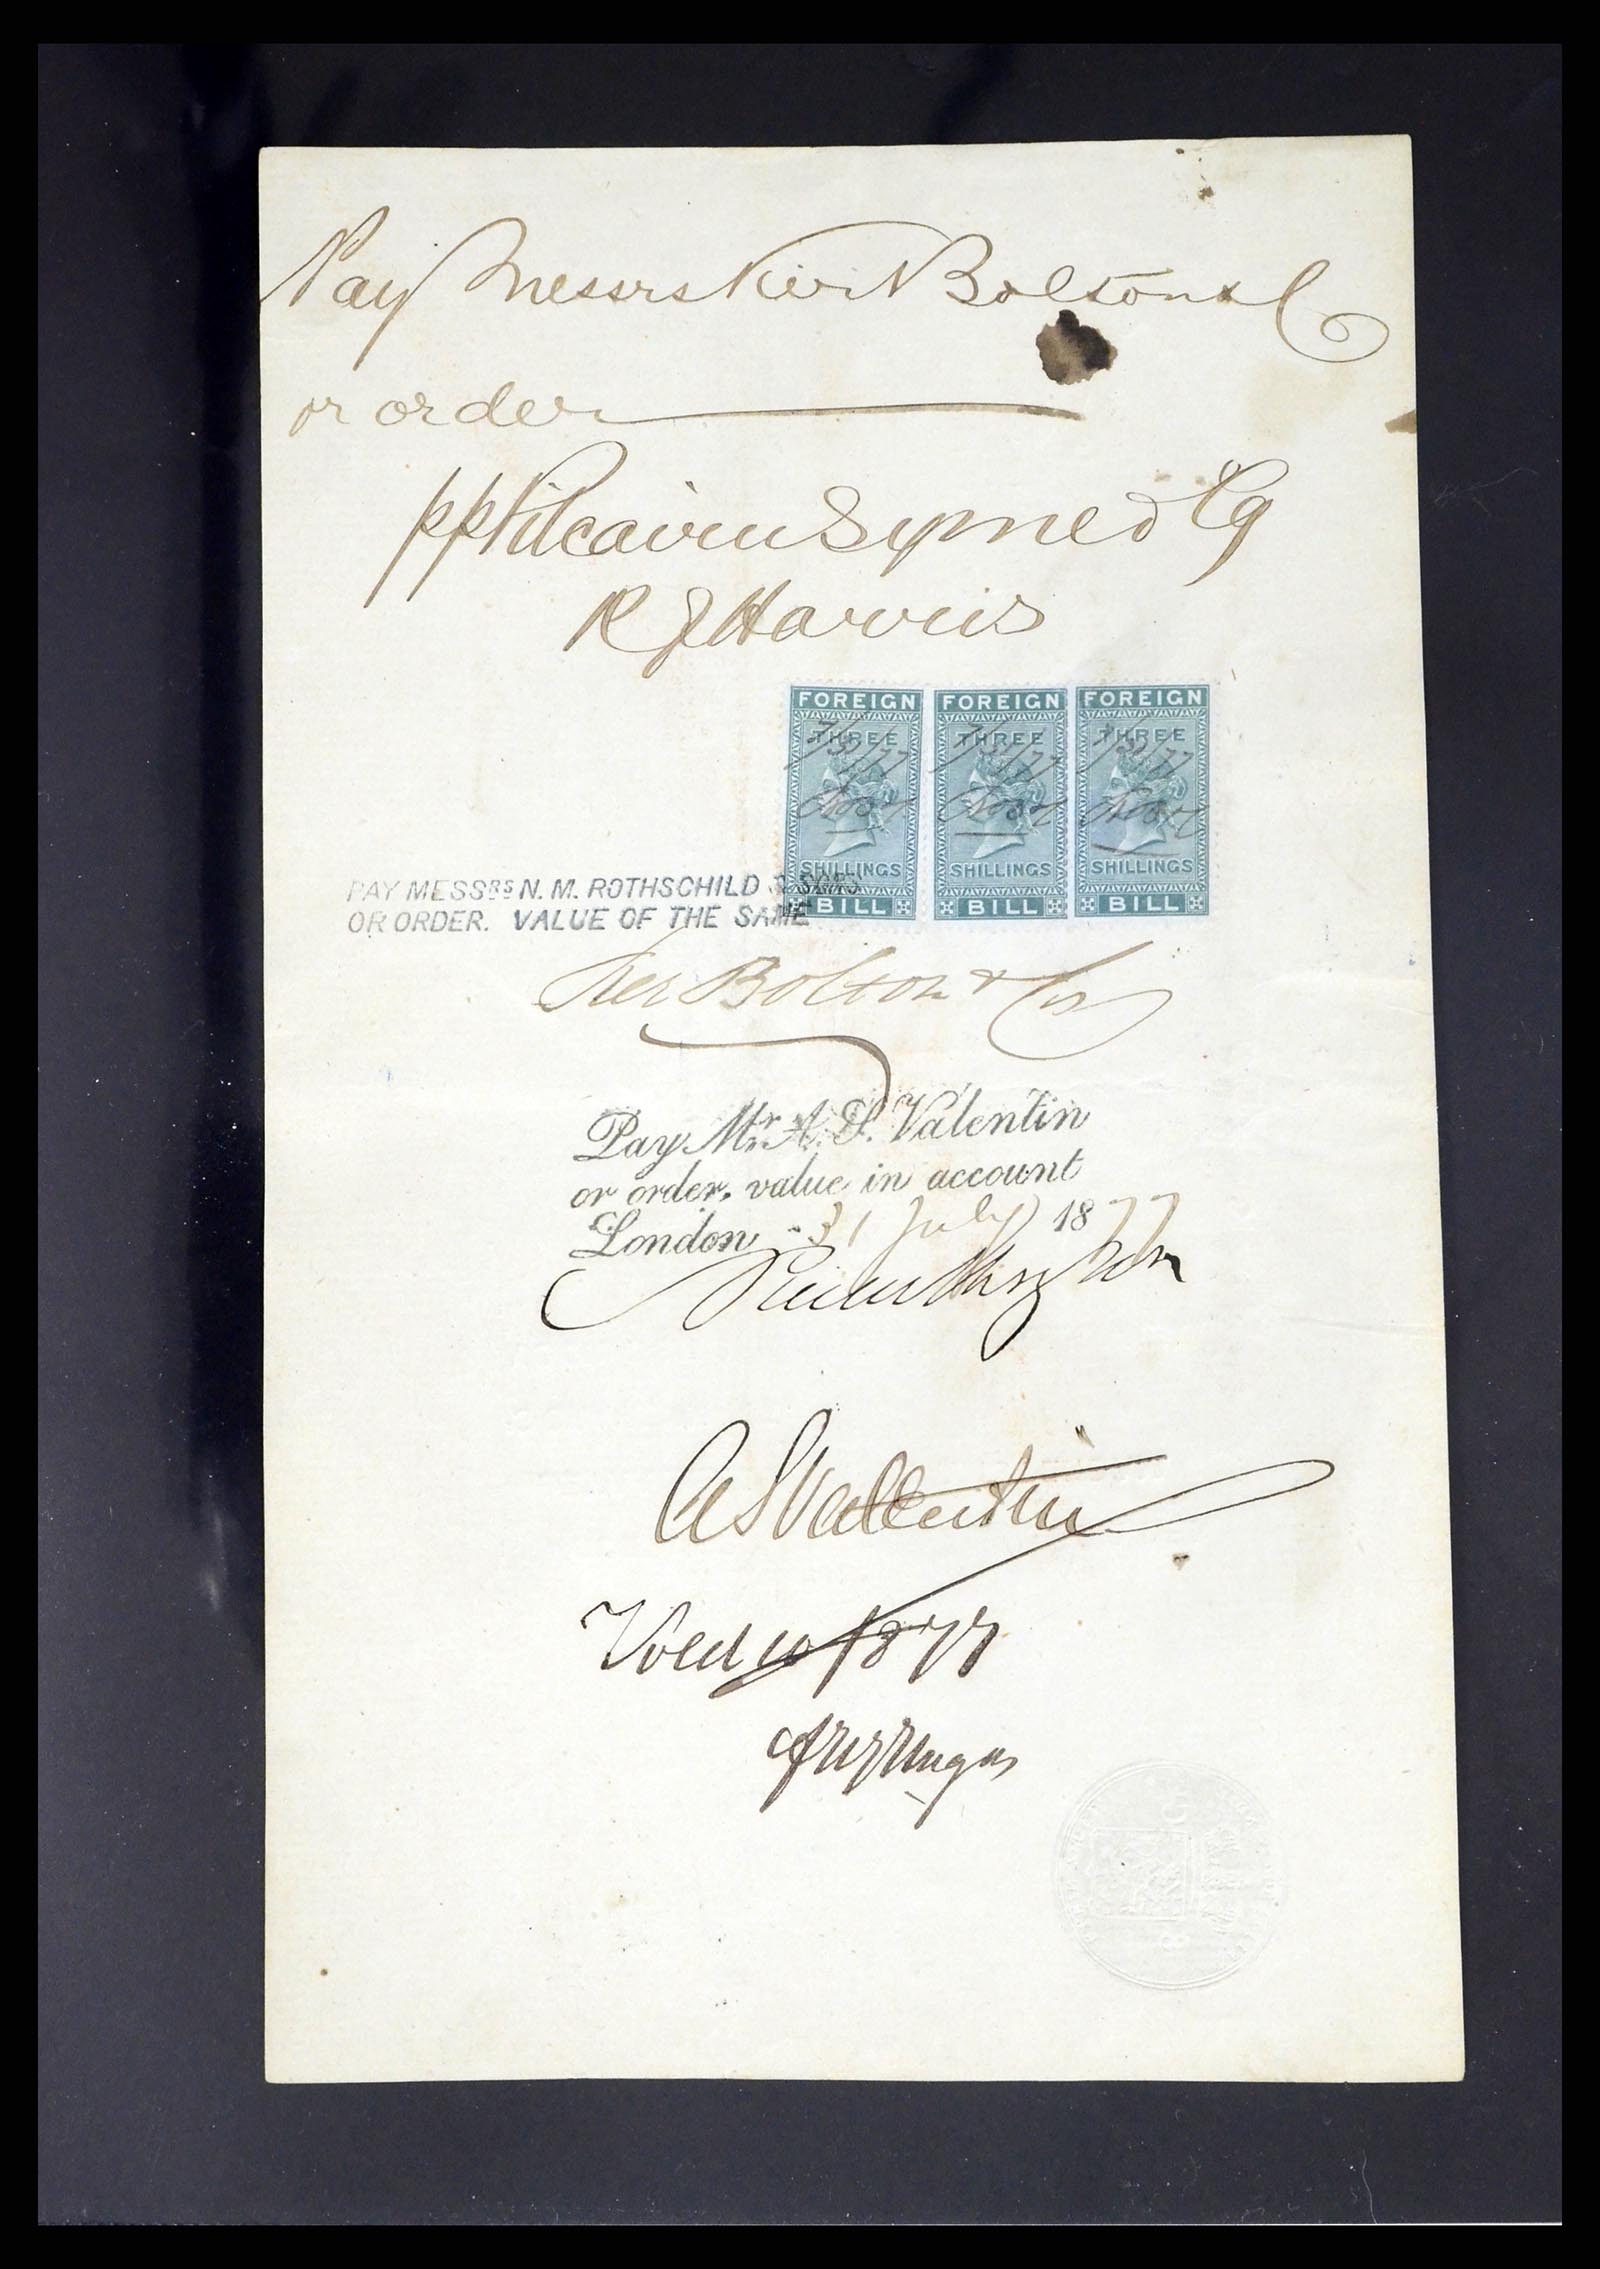 Pay Messrs Keir Bolton & Co
or order
pp Pitcairn Syme & Co
R J Harris
FOREIGN THREE SHILLINGS BILL
FOREIGN THREE SHILLINGS BILL
FOREIGN THREE SHILLINGS BILL
7/31/77
7/31/77
7/31/77
PAY MESSRS N. M. ROTHSCHILD & SONS
OR ORDER. VALUE OF THE SAME
Keir Bolton & Co
Pay Mr. A. S. Valentin
or order, value in account
London 31 July 1877
A S Valentin
1877